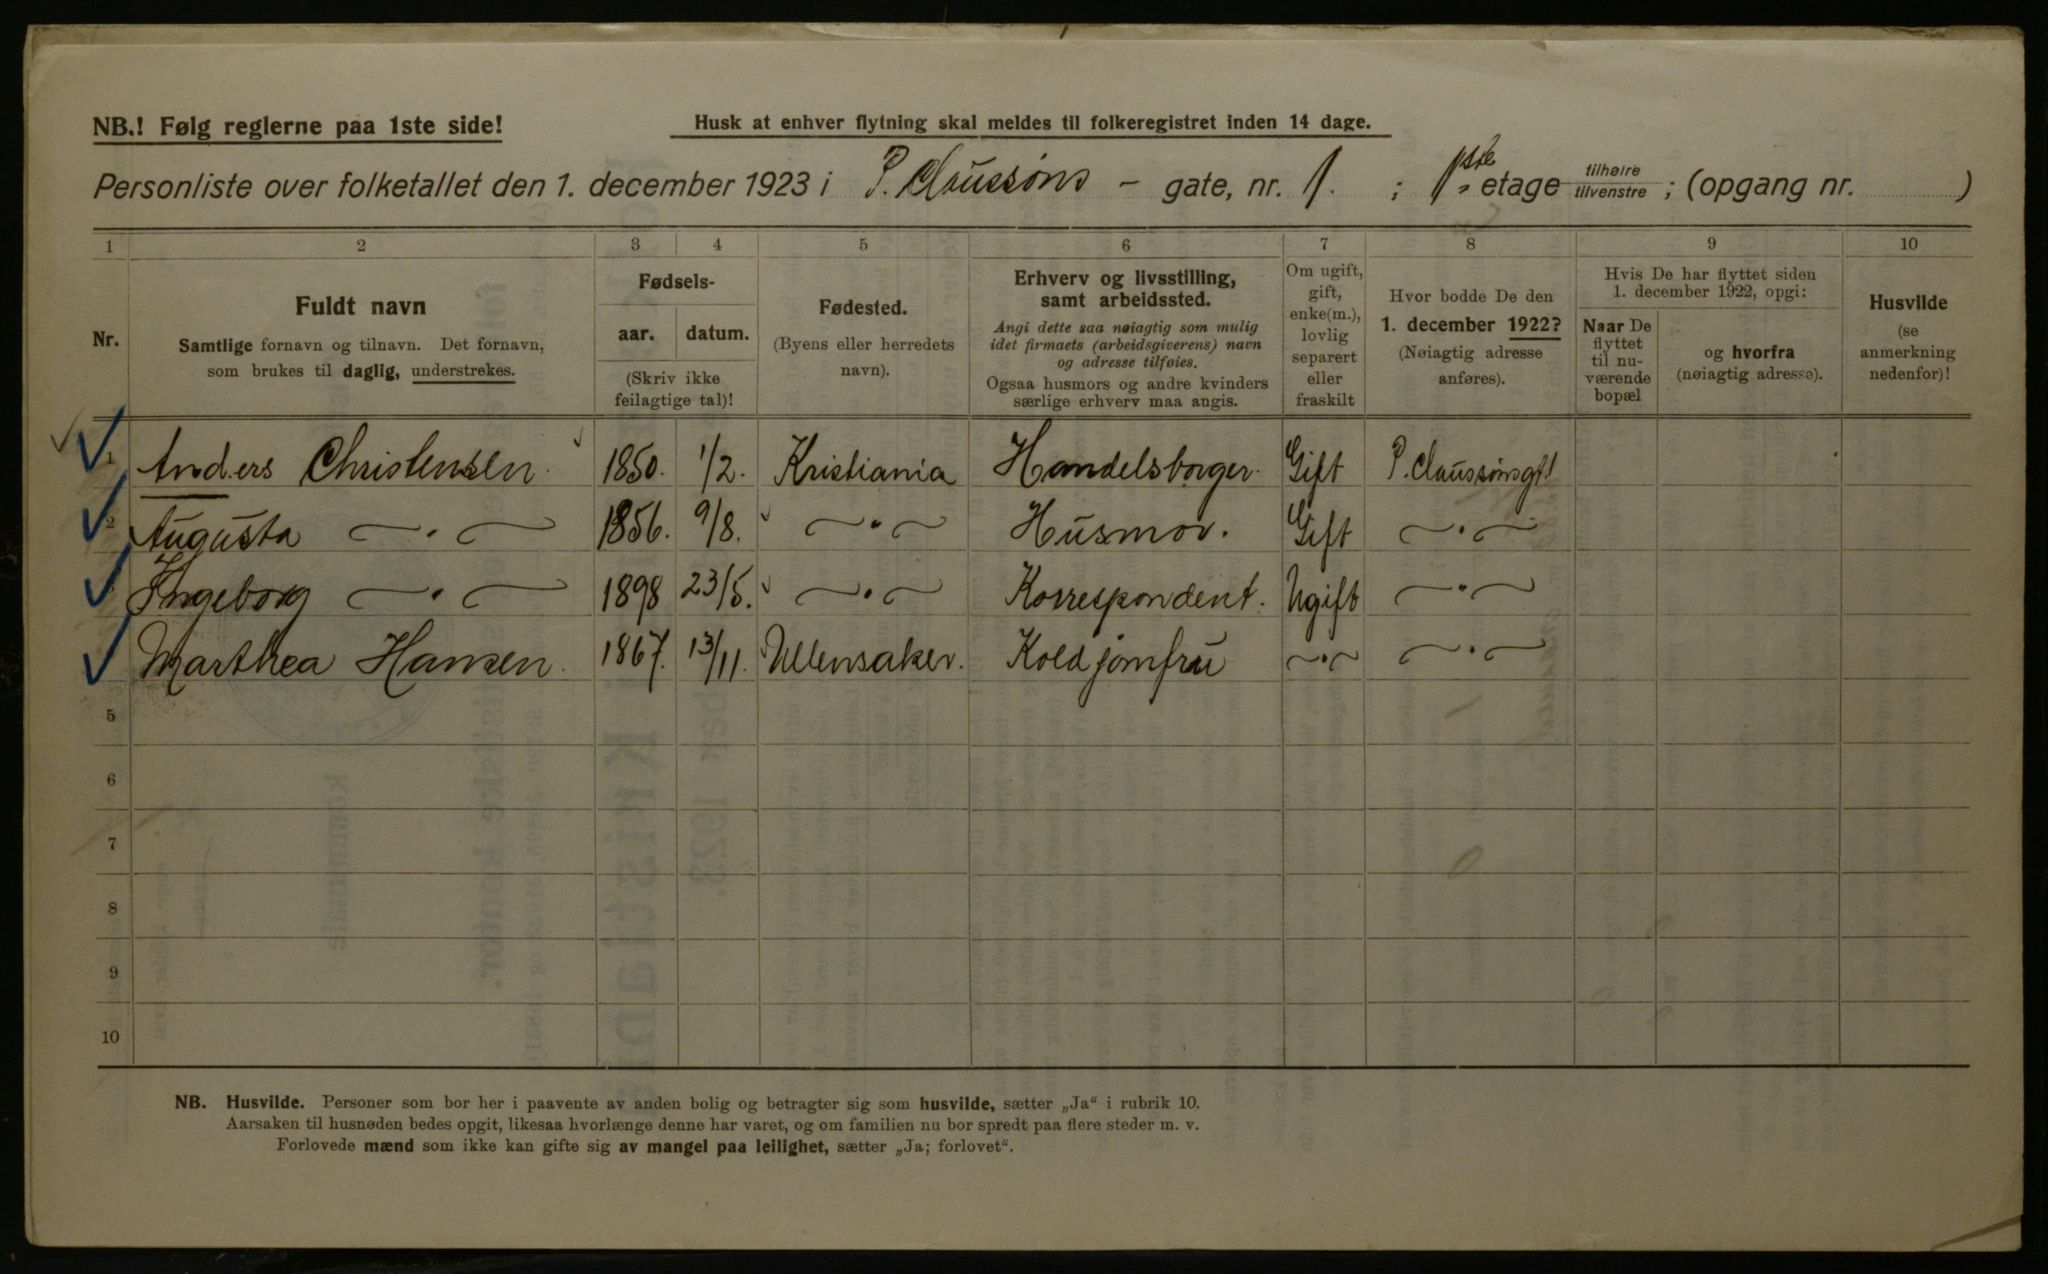 NB.! Følg reglerne paa 1ste side!
Husk at enhver flytning skal meldes til folkeregistret inden 14 dage.
Personliste over folketallet den 1. december 1923 i P. Claussøns – gate, nr. 1. ; 1ste etage tilhøire tilvenstre ; (opgang nr. )
1 2 3 4 5 6 7 8 9 10
Nr.
Fuldt navn
Samtlige fornavn og tilnavn. Det fornavn,
som brukes til daglig, understrekes.
Fødsels-
aar. datum.
(Skriv ikke
feilagtige tal)!
Fødested.
(Byens eller herredets
navn).
Erhverv og livsstilling,
samt arbeidssted.
Angi dette saa nøiagtig som mulig
idet firmaets (arbeidsgiverens) navn
og adresse tilføies.
Ogsaa husmors og andre kvinders
særlige erhverv maa angis.
Om ugift,
gift,
enke(m.),
lovlig
separert
eller
fraskilt
Hvor bodde De den
1. december 1922?
(Nøiagtig adresse
anføres).
Hvis De har flyttet siden
1. december 1922, opgi:
Naar De
flyttet
til nu-
værende
bopæl
og hvorfra
(nøiagtig adresse).
Husvilde
(se
anmerkning
nedenfor)!
1 Anders Christensen. 1850. 1/2. Kristiania Handelsborger. Gift P. Claussønsgt 1
2 Augusta —"— 1856. 9/8. —"— Husmor. Gift —"—
Ingeborg —"— 1898 23/5. —"— Korrespondent. Ugift —"—
Marthea Hansen. 1867. 13/11. Ullensaker. Koldjomfru —"— —"—
5
6
7
8
9
10
NB. Husvilde. Personer som bor her i paavente av anden bolig og betragter sig som husvilde, sætter „Ja“ i rubrik 10.
Aarsaken til husnøden bedes opgit, likesaa hvorlænge denne har varet, og om familien nu bor spredt paa flere steder m. v.
Forlovede mænd som ikke kan gifte sig av mangel paa leilighet, sætter „Ja; forlovet“.